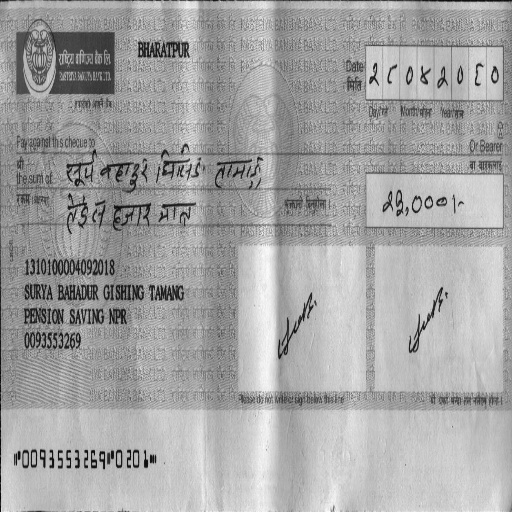 राष्ट्रिय वाणिज्य बैंक लि.
RASTRIYA BANIJYA BANK LTD.
BHARATPUR
Date
मिति
२८०४२०८०
Day/गते Month/महिना Year/साल
Pay against this cheque to
Or Bearer
श्री सूर्य बहादुर घिसिङ तामाङ
वा वाहकलाई
the sum of
तेईस हजार मात्र
२३,०००।-
1310100004092018
SURYA BAHADUR GISHING TAMANG
PENSION SAVING NPR
0093553269
Please do not write or sign below this line
⑈0093553269⑈0201⑈